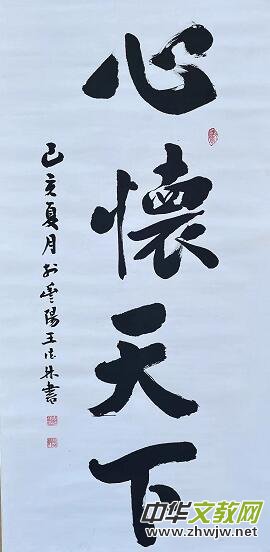 心懷天下
己亥夏月於豐陽王
書
中华文教网
www.zhwjw.net